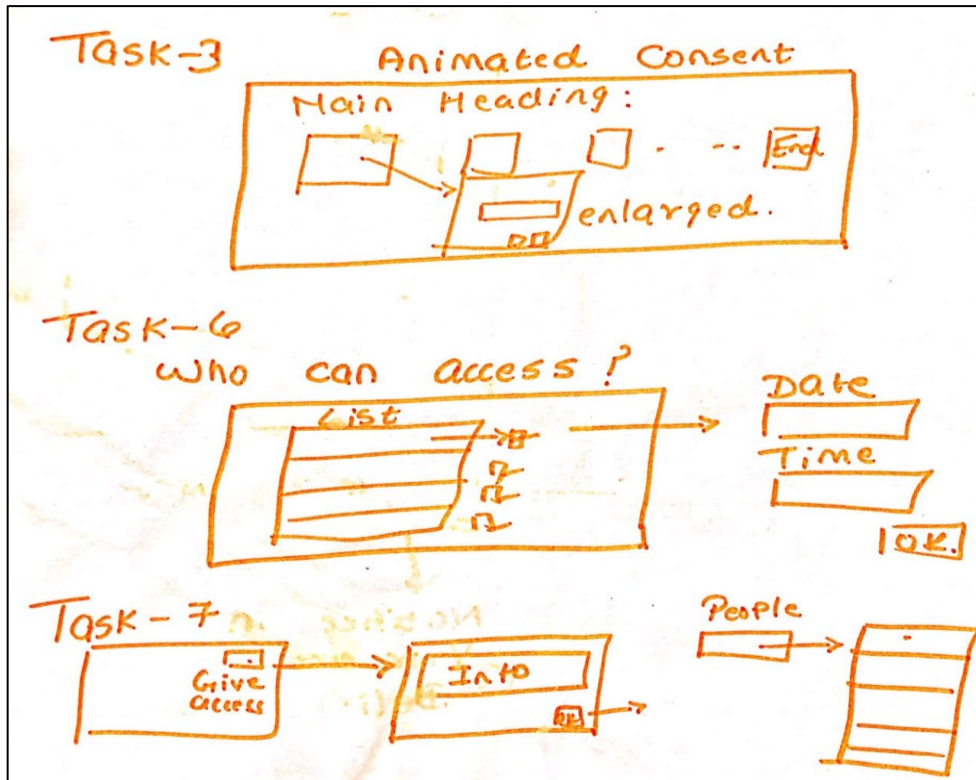 Task-3
Animated Consent
Main Heading:
End
enlarged.
Task-6
Who can access?
List
Date
Time
OK.
Task-7
People
Give
access
Info
OK